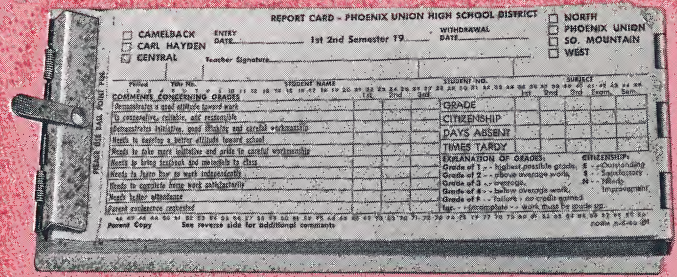 REPORT CARD - PHOENIX UNION HIGH SCHOOL DISTRICT
CAMELBACK
CARL HAYDEN
CENTRAL
ENTRY DATE
1st 2nd Semester 19
WITHDRAWAL DATE
NORTH
PHOENIX UNION
SO. MOUNTAIN
WEST
Teacher Signature
PLEASE USE BALL POINT PEN
Period Title No. STUDENT NAME STUDENT NO. SUBJECT
COMMENTS CONCERNING GRADES 1st 2nd 3rd
1st 2nd 3rd Exam. Sem.
Demonstrates a good attitude toward work
Is cooperative, reliable, and responsible
Demonstrates initiative, good thinking and careful workmanship
Needs to develop a better attitude toward school
Needs to take more initiative and pride in careful workmanship
Needs to bring textbook and materials to class
Needs to learn how to work independently
Needs to complete home work satisfactorily
Needs better attendance
Parent conference requested
GRADE
CITIZENSHIP
DAYS ABSENT
TIMES TARDY
EXPLANATION OF GRADES:
Grade of 1 -- highest possible grade.
Grade of 2 -- above average work.
Grade of 3 -- average.
Grade of 4 -- below average work.
Grade of 5 -- failure - no credit earned
Inc. -- incomplete -- work must be made up.
CITIZENSHIP:
E - Outstanding
S - Satisfactory
N - Needs Improvement
Parent Copy See reverse side for additional comments